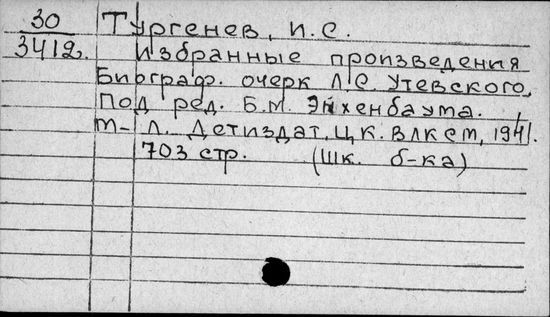 30
3412.
Тургенев, И. С.
Избранные произведения
Биограф. очерк Л.С. Утевского,
Под ред. Б.М. Эйхенбаума.
М-Л. Детиздат, ЦК. ВЛКСМ, 1941.
703 стр. (Шк. б-ка)